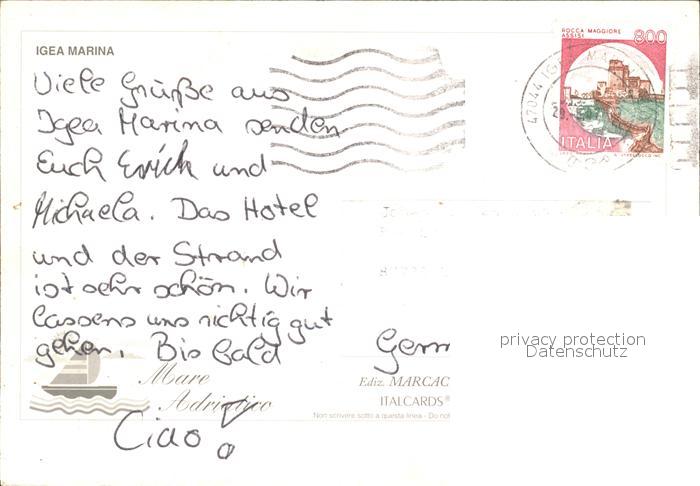 IGEA MARINA
Viele Grüße aus
Igea Marina senden
Euch Erich und
Michaela. Das Hotel
und der Strand
ist sehr schön. Wir
lassens uns richtig gut
gehen. Bis bald
Ciao!
Mare
Adriatico
ROCCA MAGGIORE
ASSISI
800
ITALIA
47044 IGEA
Germ
privacy protection
Datenschutz
Ediz. MARCAC
ITALCARDS®
Non scrivere sotto a questa linea - Do not